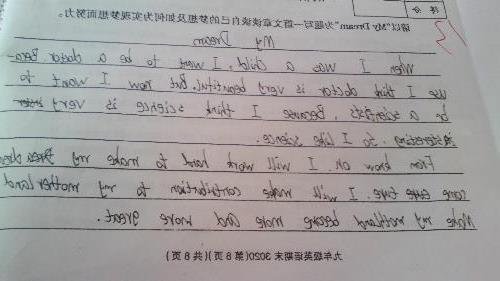 得分
请以"My Dream"为题写一篇文章谈谈自己的梦想及如何为实现梦想而努力。
My Dream
When I was a child, I want to be a doctor. Beca-
use I think doctor is very beautiful. But now I want to
be a scientists, Because I think science is very inter
interesting. so I like science.
From know on. I will work hard to make my dream
come true. I will make contribution to my motherland
Make my mothland become more and more great.
九年级英语期末 3020(第 8 页)(共 8 页)